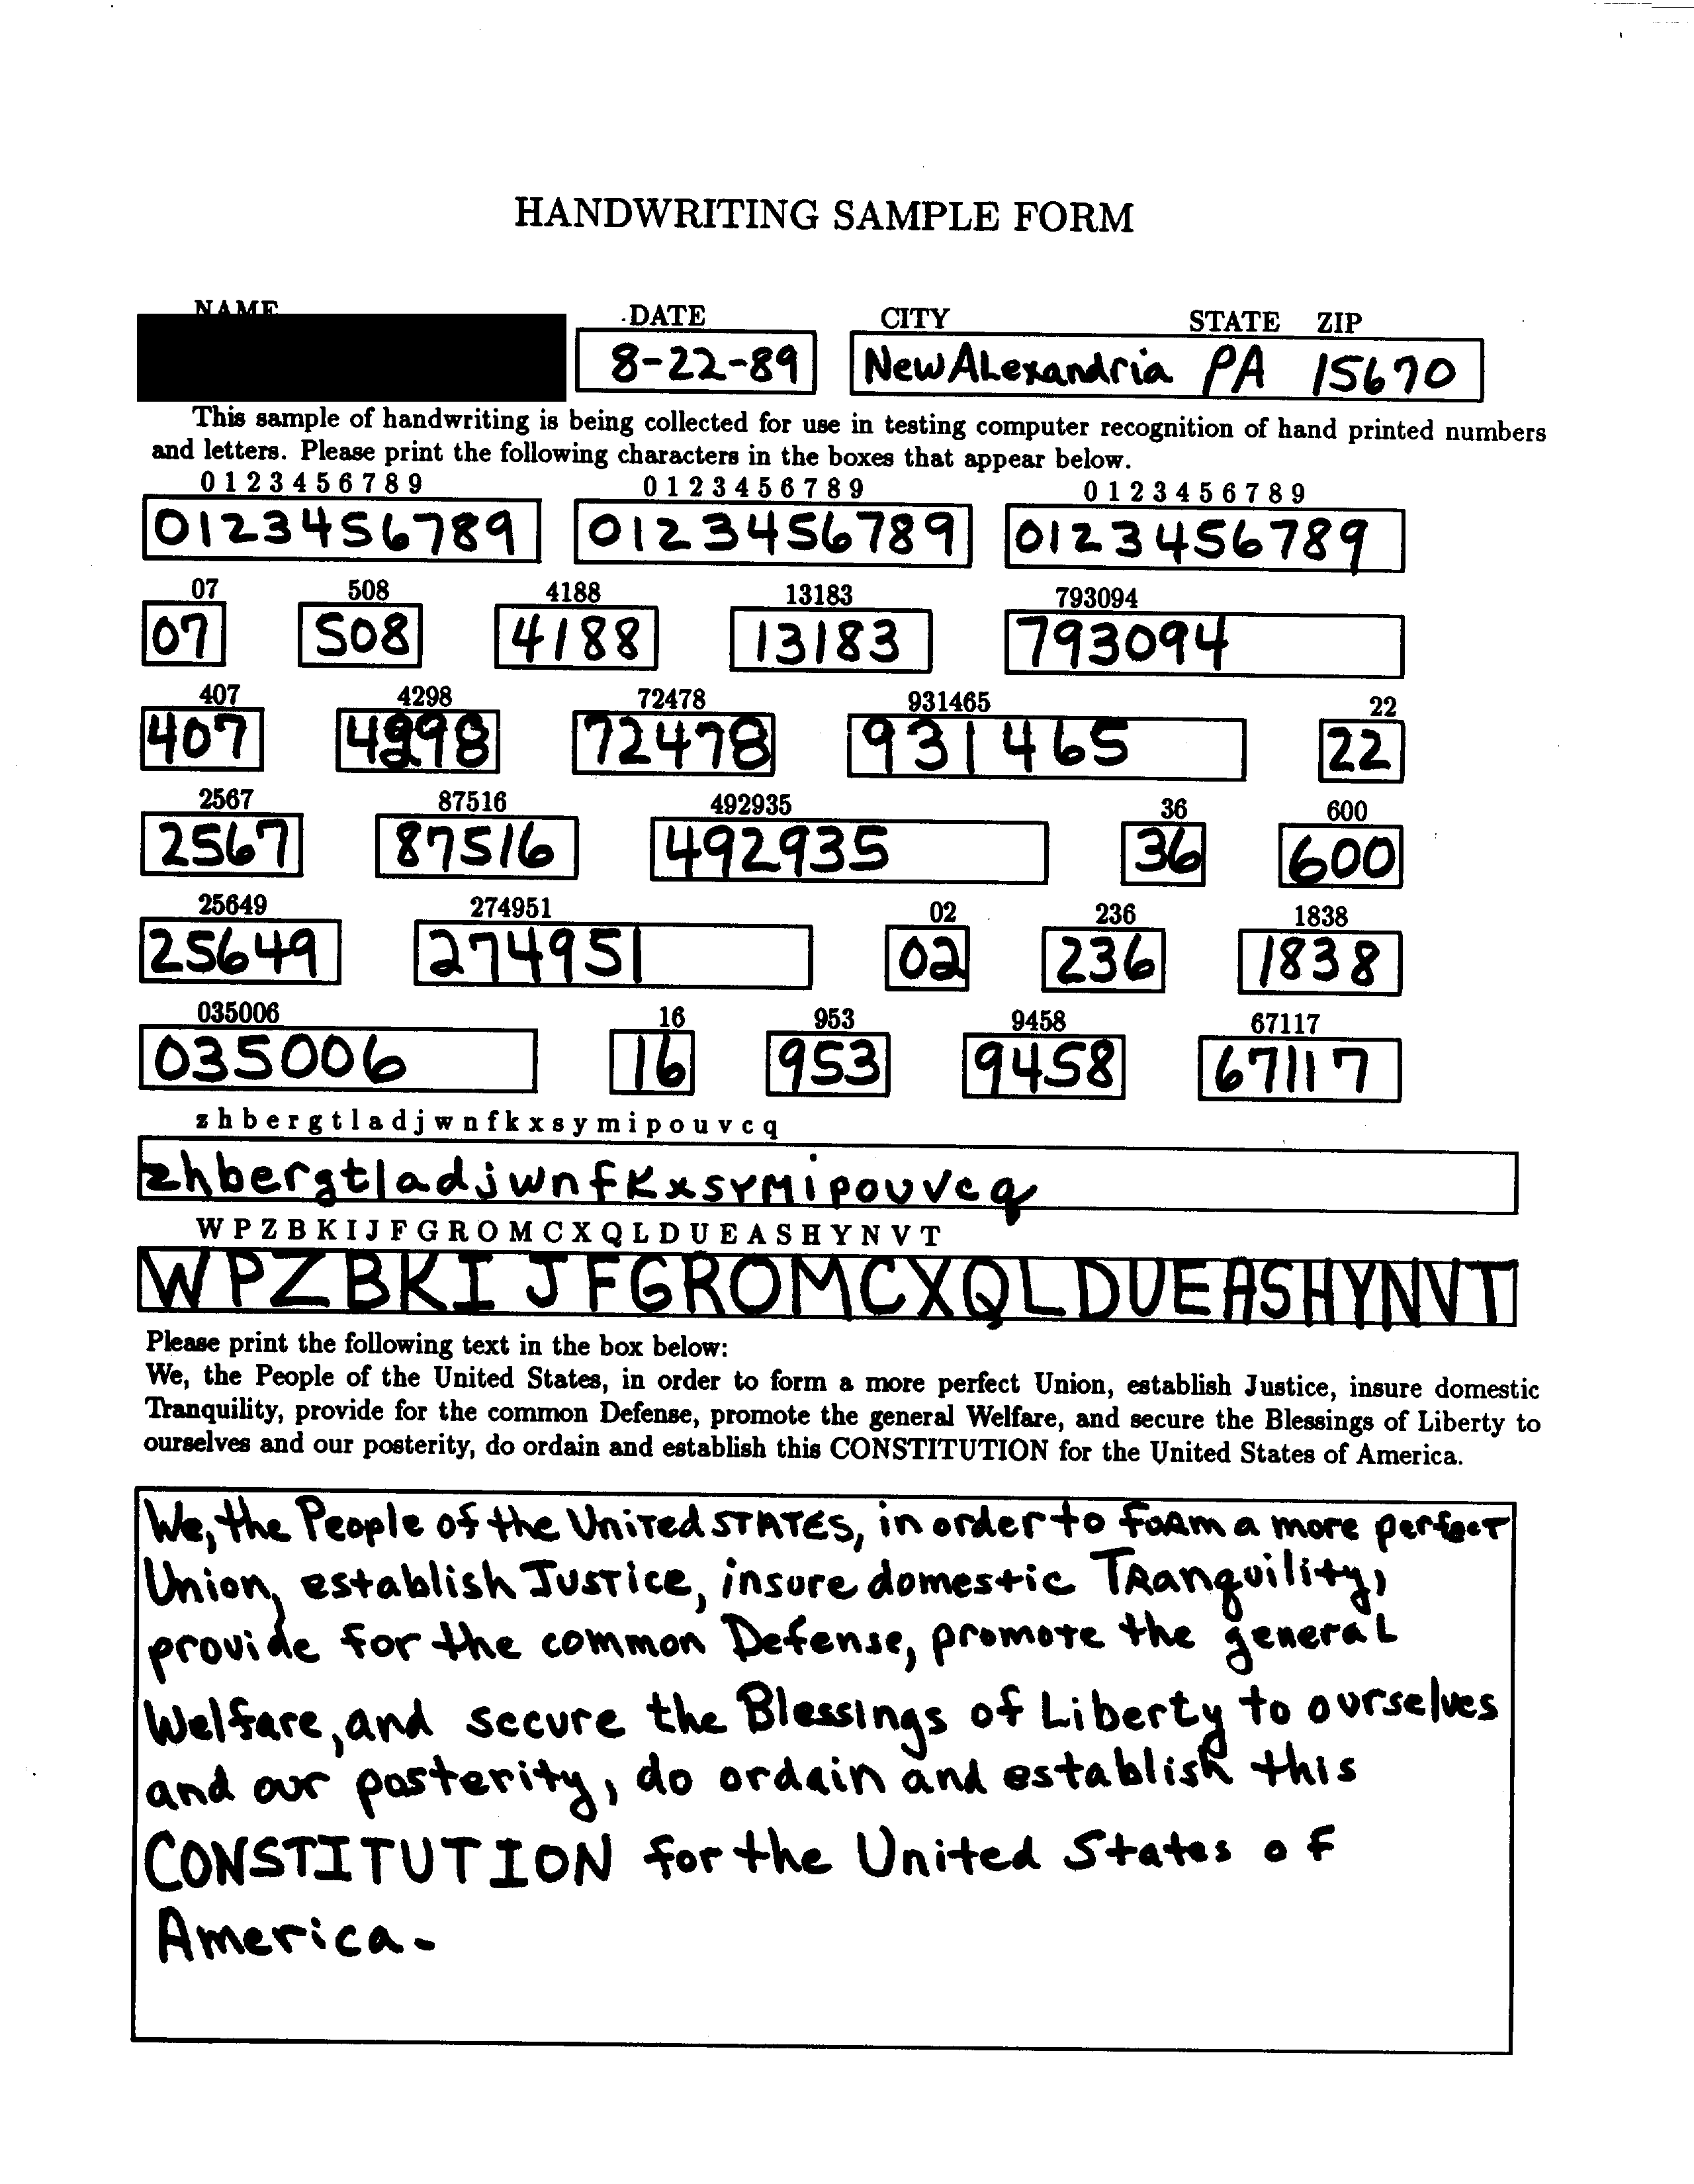 HANDWRITING SAMPLE FORM
NAME DATE CITY STATE ZIP
8-22-89 New ALexandria PA 15670
This sample of handwriting is being collected for use in testing computer recognition of hand printed numbers
and letters. Please print the following characters in the boxes that appear below.
0 1 2 3 4 5 6 7 8 9 0 1 2 3 4 5 6 7 8 9 0 1 2 3 4 5 6 7 8 9
0123456789 0123456789 0123456789
07 508 4188 13183 793094
07 508 4188 13183 793094
407 4298 72478 931465 22
407 4298 72478 931465 22
2567 87516 492935 36 600
2567 87516 492935 36 600
25649 274951 02 236 1838
25649 274951 02 236 1838
035006 16 953 9458 67117
035006 16 953 9458 67117
z h b e r g t l a d j w n f k x s y m i p o u v c q
zhbergtladjwnfkxsymipouvcq
W P Z B K I J F G R O M C X Q L D U E A S H Y N V T
WPZBKIJFGROMCXQLDUEASHYNVT
Please print the following text in the box below:
We, the People of the United States, in order to form a more perfect Union, establish Justice, insure domestic
Tranquility, provide for the common Defense, promote the general Welfare, and secure the Blessings of Liberty to
ourselves and our posterity, do ordain and establish this CONSTITUTION for the United States of America.
We, the People of the UniTed STATES, in order to foRm a more perfecT
Union, establish JusTice, insure domestic TRanquility,
provide for the common Defense, promoTe the generaL
Welfare, and secure the Blessings of Liberty to ourselves
and our posterity, do ordain and establish this
CONSTITUTION for the United States of
America.